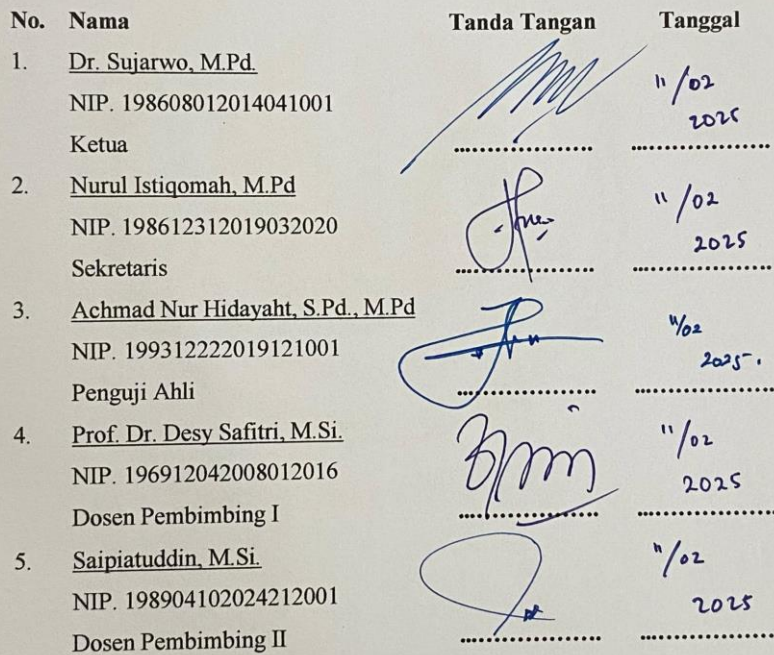 No. Nama Tanda Tangan Tanggal
1. Dr. Sujarwo, M.Pd.
NIP. 198608012014041001
Ketua
11/02
2025
2. Nurul Istiqomah, M.Pd
NIP. 198612312019032020
Sekretaris
11/02
2025
3. Achmad Nur Hidayaht, S.Pd., M.Pd
NIP. 199312222019121001
Penguji Ahli
11/02
2025.
4. Prof. Dr. Desy Safitri, M.Si.
NIP. 196912042008012016
Dosen Pembimbing I
11/02
2025
5. Saipiatuddin, M.Si.
NIP. 198904102024212001
Dosen Pembimbing II
11/02
2025